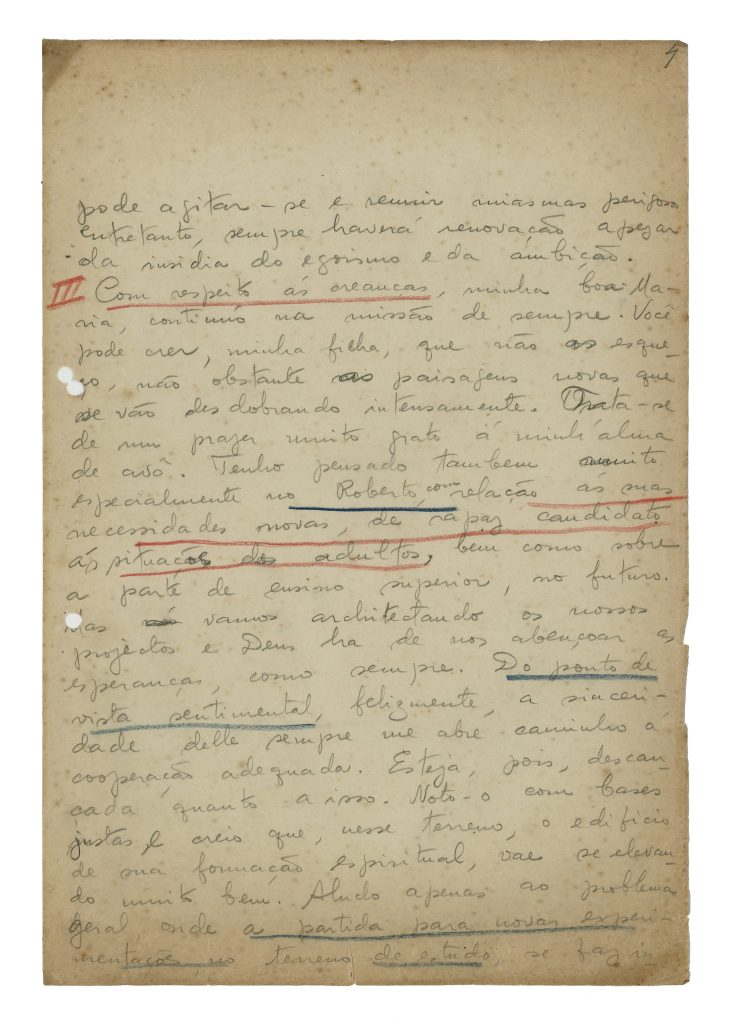 4
pode agitar-se e reunir miasmas perigosos
entretanto, sempre haverá renovação apezar
da insidia do egoismo e da ambição.
III Com respeito ás creanças, minha boa Ma-
ria, continúo na missão de sempre. Você
pode crer, minha filha, que não os esque-
ço, não obstante as paisagens novas que
se vão desdobrando intensamente. Trata-se
de um prazer muito grato á minh'alma
de avô. Tenho pensado tambem muito
especialmente no Roberto, com relação as suas
necessidades novas, de rapaz candidato
ás situações dos adultos, bem como sobre
a parte de ensino superior, no futuro.
Mas vamos architectando os nossos
projectos e Deus ha de nos abençoar as
esperanças, como sempre. Do ponto de
vista sentimental, felizmente, a sinceri-
dade delle sempre me abre caminho á
cooperação adequada. Esteja, pois, descan-
çada quanto a isso. Noto-o com bases
justas e creio que, nesse terreno, o edificio
de sua formação espiritual, vae se elevan-
do muito bem. Aludo apenas ao problema
geral onde a partida para novas experi-
mentações, no terreno de estudo, se faz in